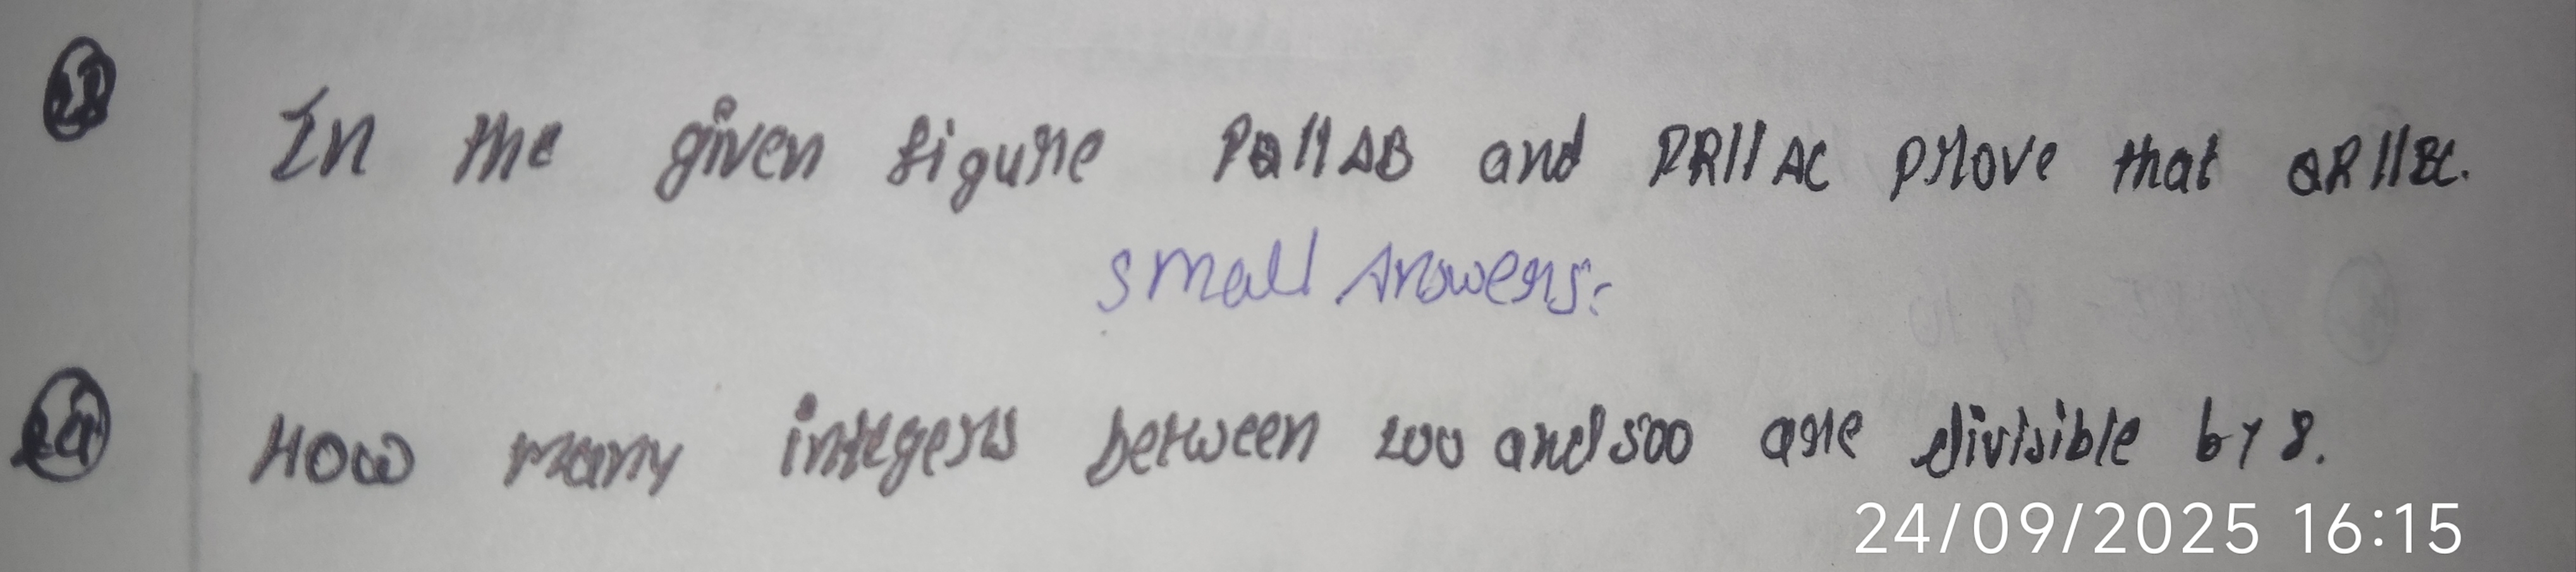 28 In the given figure PQ||AB and PR||AC prove that QR||BC.
small Answers:
How many integers between 200 and 500 are divisible by 8.
24/09/2025 16:15